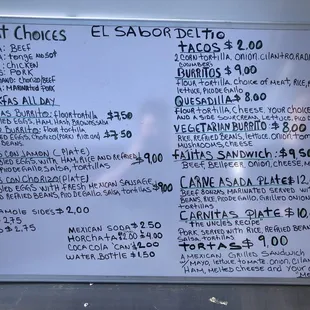 EL SABOR DEL TIO
t CHOICES
: BEEF
: CHICKEN
PORK
FAS ALL DAY
BURRITO: FLOUR TORTILLA $7.50
EGGS, HAM, HASH BROWNS
BURRITO: FLOUR TORTILLA
EGGS, CHORIZO (PORK) RICE $7.50
BEANS
CON JAMON (PLATE)
EGGS WITH, HAM, RICE AND REFRIED $9.00
PICO DE GALLO, SALSA, TORTILLAS
CON CHORIZO (PLATE)
EGGS WITH FRESH MEXICAN SAUSAGE,
REFRIED BEANS, PICO DE GALLO, SALSA, TORTILLAS $9.00
AMOLE SIDES $2.00
$2.75
$1.75
MEXICAN SODA $2.50
HORCHATA $2.00 $4.00
COCA COLA CAN $2.00
WATER BOTTLE $1.50
TACOS $2.00
2 CORN TORTILLA, ONION, CILANTRO, RADI
CUCUMBERS
BURRITOS $9.00
FLOUR TORTILLA, CHOICE OF MEAT, RICE,
LETTUCE, PICO DE GALLO
QUESADILLA $8.00
FLOUR TORTILLA, CHEESE, YOUR CHOICE
AND A SIDE SOUR CREAM, LETTUCE, PICO D
VEGETARIAN BURRITO $8.00
RICE, REFRIED BEANS, LETTUCE, PICO DE GALLO
MUSHROOMS, CHEESE
FAJITAS SANDWICH $9.50
BEEF, BELLPEPER, ONION, CHEESE,
CARNE ASADA PLATE $12.
BEEF BONZAS MARINATED SERVED WIT
BEANS, RICE, PICO DE GALLO, GRILLED ONION
TORTILLAS
CARNITAS PLATE $10.
THE UNCLES RECIPE
PORK SERVED WITH RICE, REFRIED BEAN
SALSA, TORTILLAS
TORTAS $9.00
A MEXICAN GRILLED SANDWICH
W/MAYO, LETTUCE, TOMATE, ONION, CILAN
HAM, MELTED CHEESE AND YOUR C